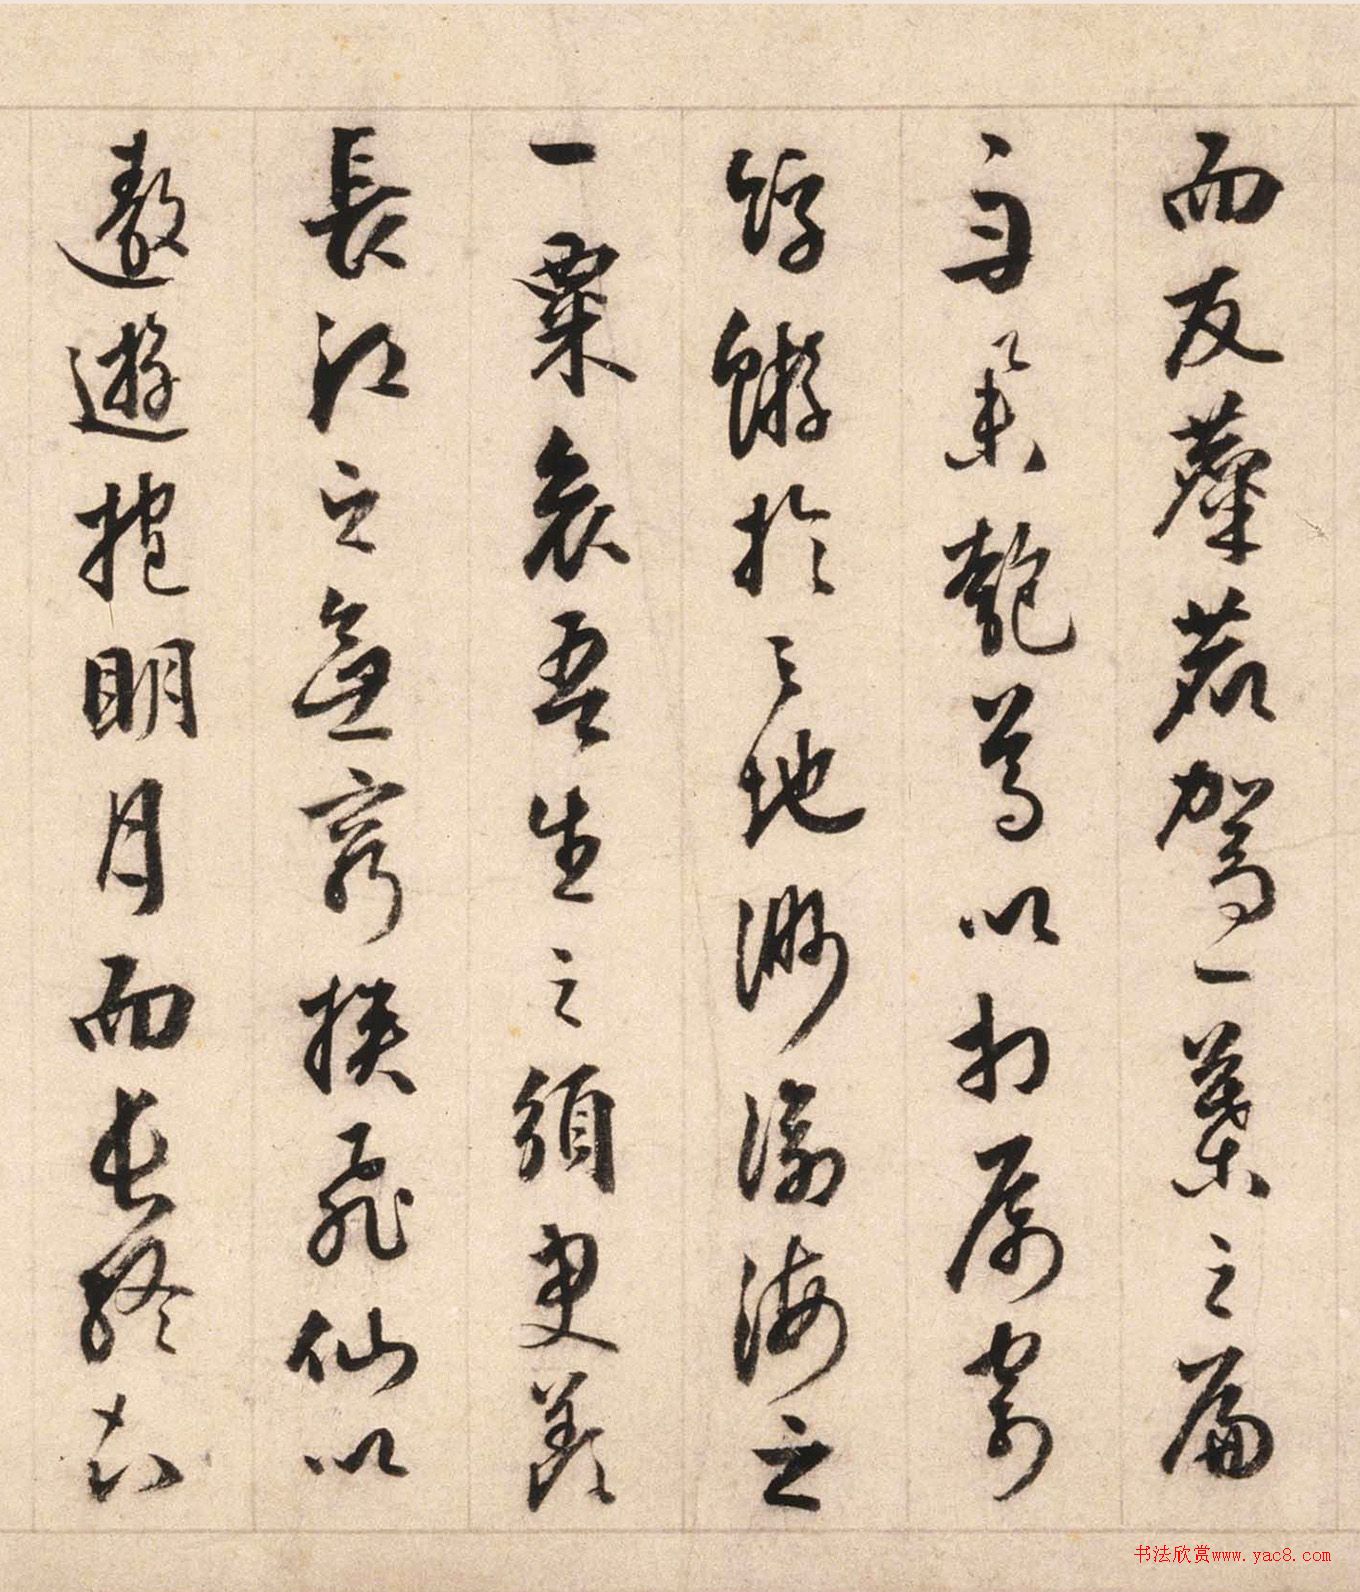 而友麋鹿駕一葉之扁
舟舉匏尊以相屬寄
蜉蝣於天地渺滄海之
一粟哀吾生之須臾羨
長江之無窮挾飛仙以
遨遊抱明月而長終知
书法欣赏www.yac8.com